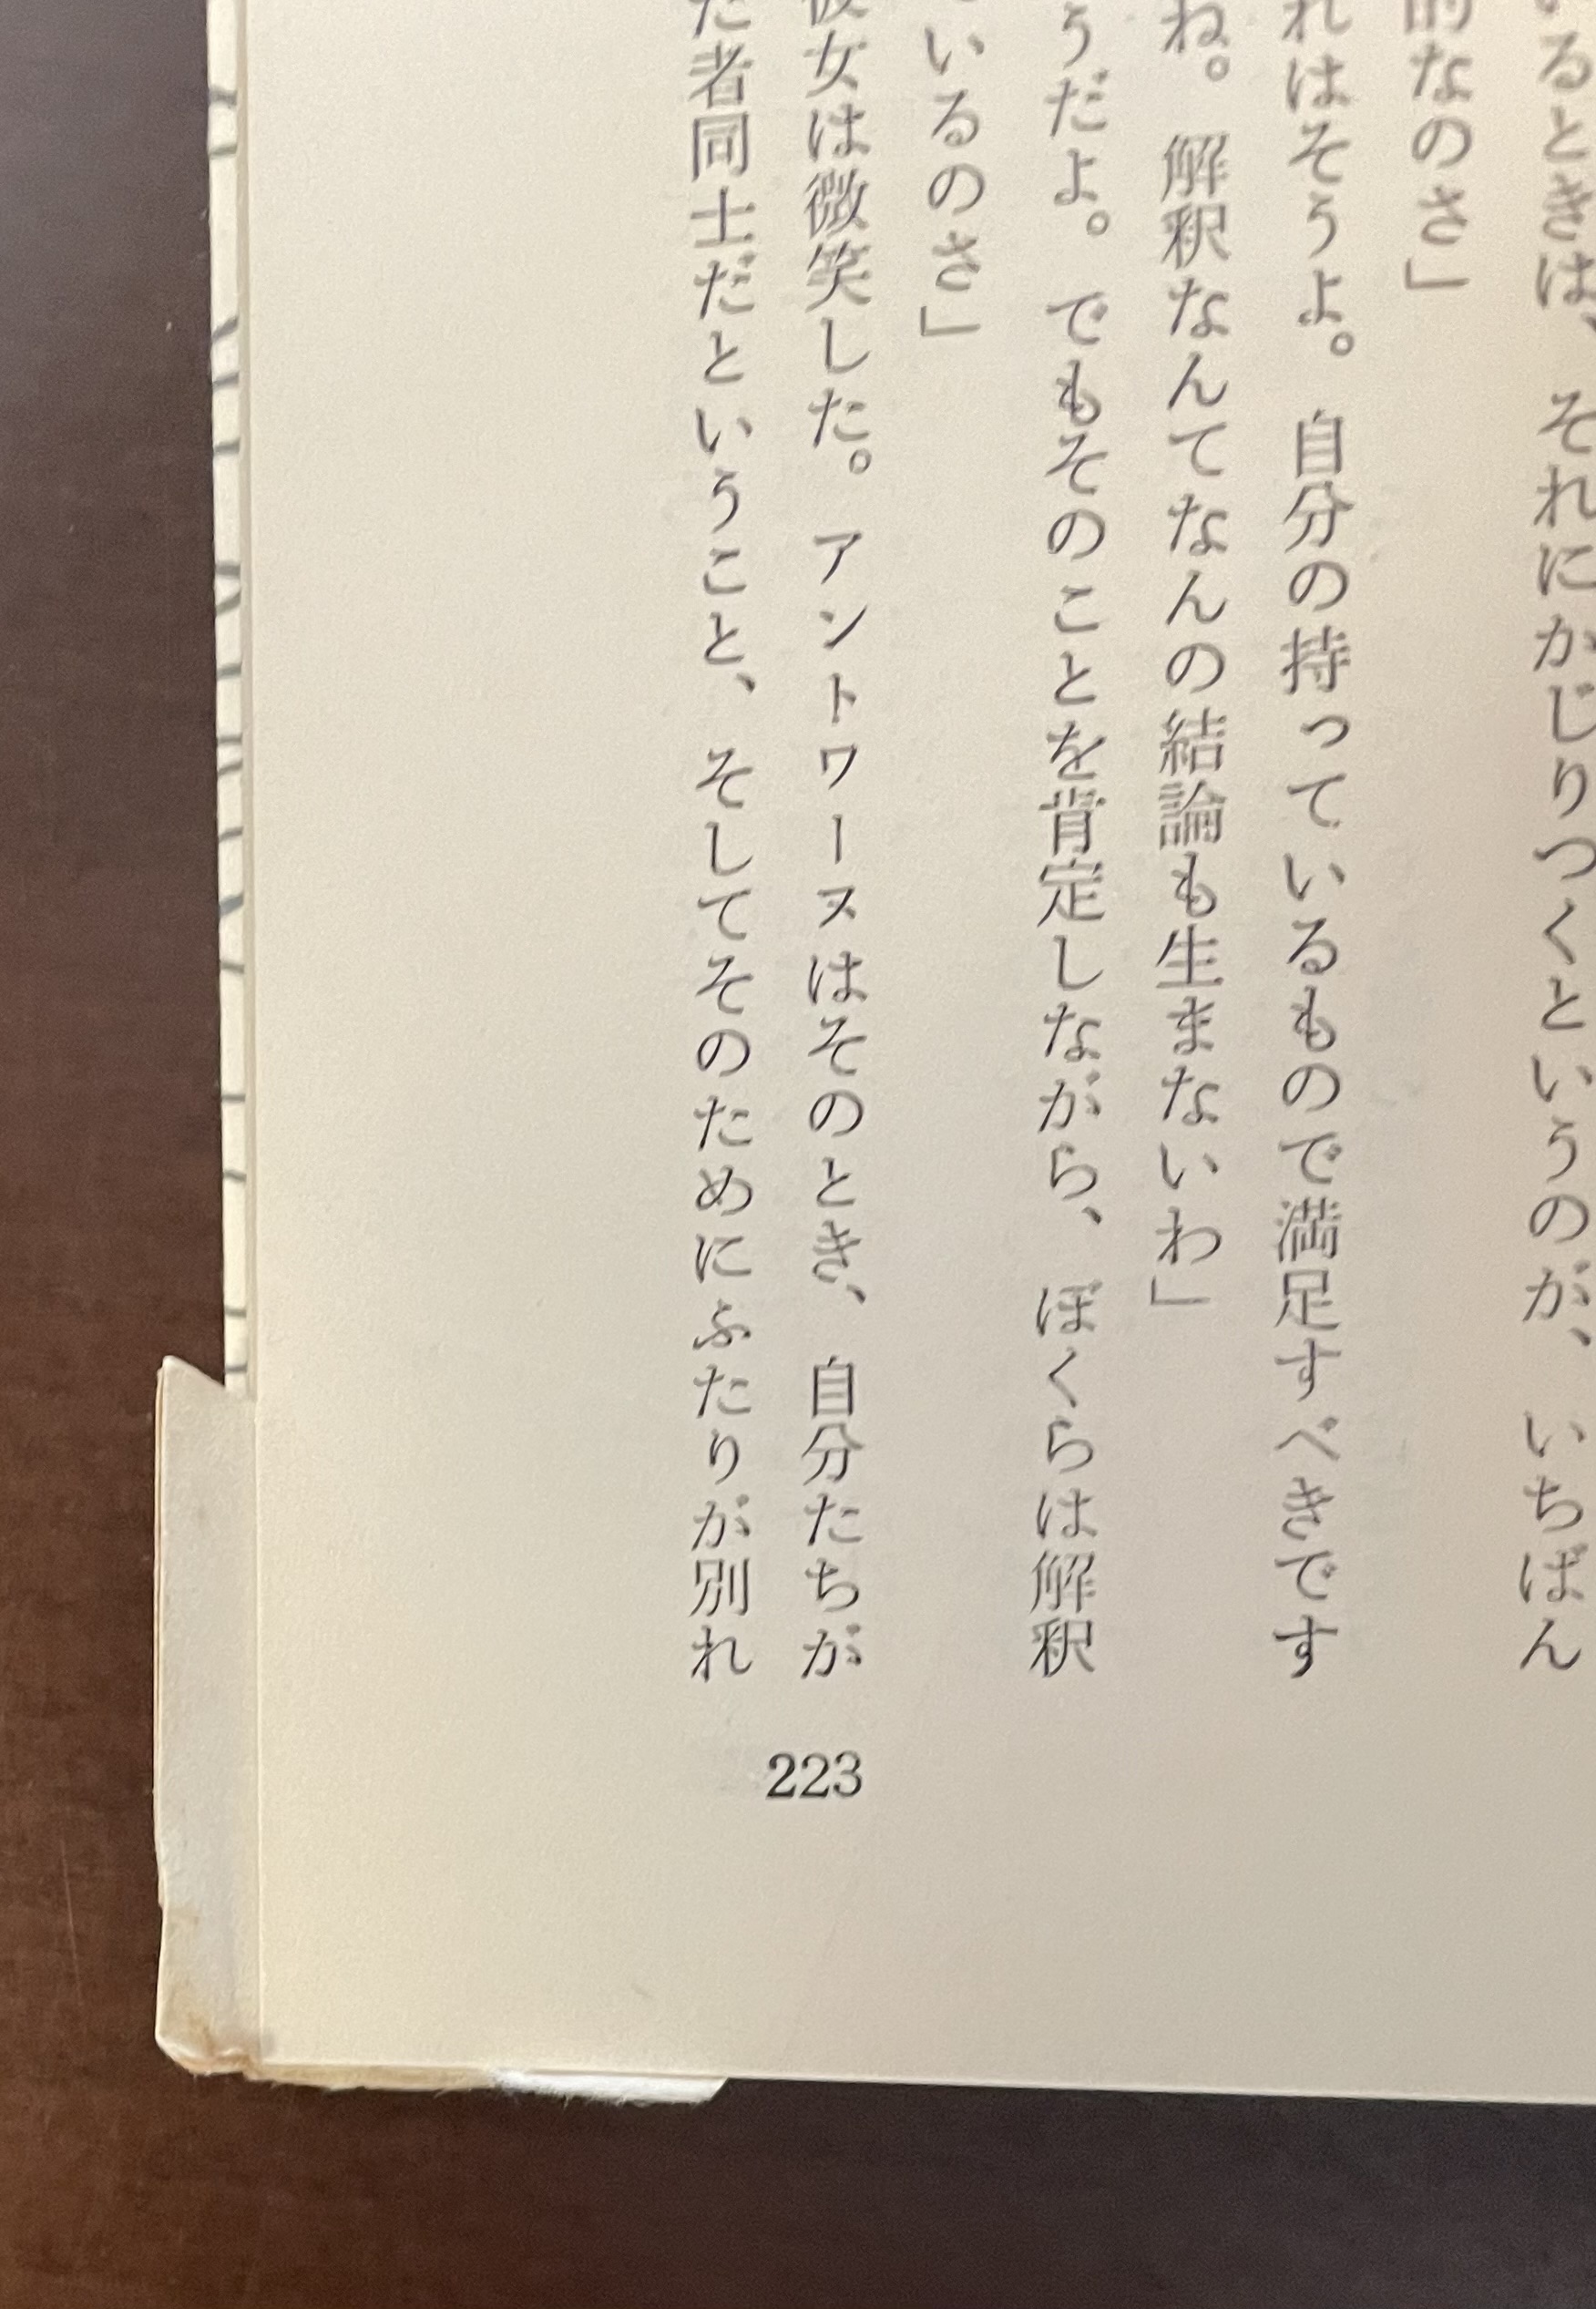 るときは、それにかじりつくというのが、いちばん
的なのさ」
れはそうよ。自分の持っているもので満足すべきです
ね。解釈なんてなんの結論も生まないわ」
うだよ。でもそのことを肯定しながら、ぼくらは解釈
いるのさ」
彼女は微笑した。アントワーヌはそのとき、自分たちが
た者同士だということ、そしてそのためにふたりが別れ
223